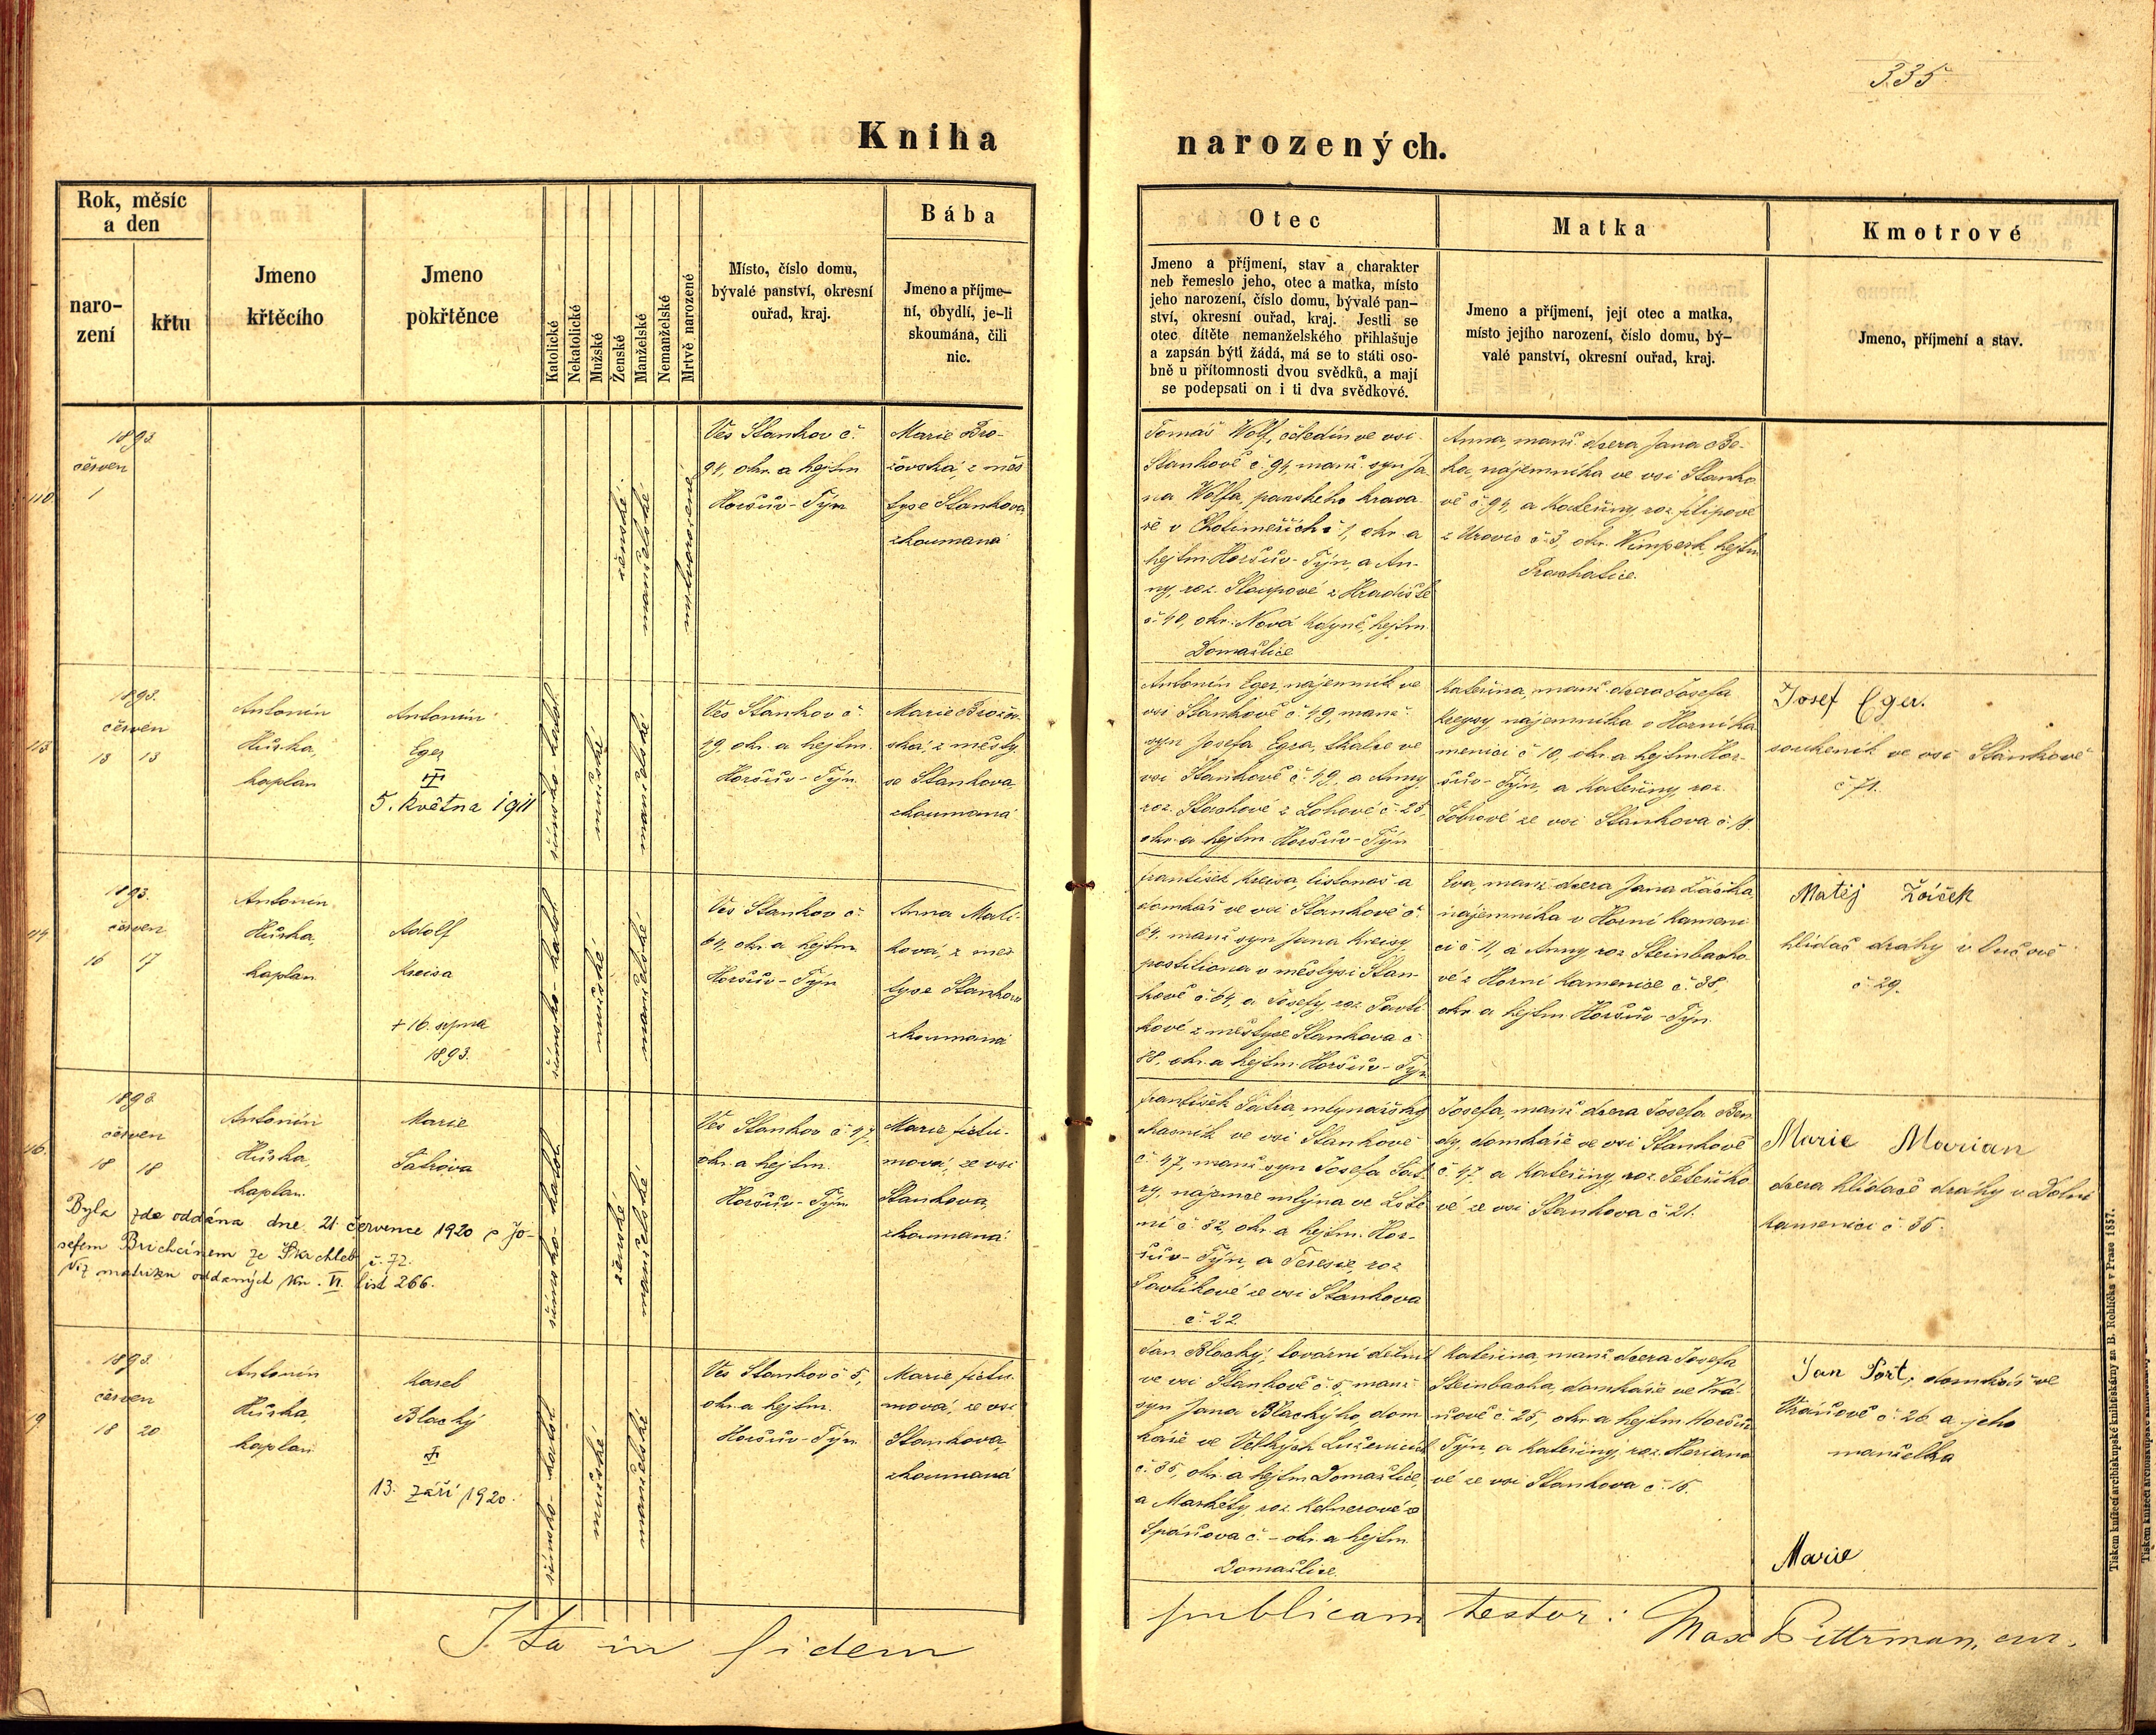 335.
Kniha narozených.
Rok, měsíc
a den
naro-
zení
křtu
Jmeno
křtěcího
Jmeno
pokřtěnce
Katolické
Nekatolické
Mužské
Ženské
Manželské
Nemanželské
Mrtvě narozené
Místo, číslo domu,
bývalé panství, okresní
ouřad, kraj.
Bába
Jmeno a příjme-
ní, obydlí, je-li
skoumána, čili
nic.
Otec
Jmeno a příjmení, stav a charakter
neb řemeslo jeho, otec a matka, místo
jeho narození, číslo domu, bývalé pan-
ství, okresní ouřad, kraj. Jestli se
otec dítěte nemanželského přihlašuje
a zapsán býti žádá, má se to státi oso-
bně u přítomnosti dvou svědků, a mají
se podepsati on i ti dva svědkové.
Matka
Jmeno a příjmení, její otec a matka,
místo jejího narození, číslo domu, bý-
valé panství, okresní ouřad, kraj.
Kmotrové
Jmeno, příjmení a stav.
1893
červen
1
ženské
manželské
mrtvorozené
Ves Stankov č.
94, okr. a hejtm
Horšův-Týn
Marie Bro-
žovská, z měs
tyse Stankova
zkoumaná
Tomáš Wolf, čeledín ve vsi
Stankově č. 94, manž. syn Ja
na Wolfa, panského krava
ře v Chotiměřích č. 1, okr. a
hejtm Horšův-Týn, a An-
ny, roz. Sloupové z Hradiště
č. 40, okr. Nová Kdyně, hejtm.
Domažlice
Anna, manž. dcera Jana Be-
ha, nájemníka ve vsi Stanko
vě č. 94, a Kateřiny, roz. Filipové
z č. 3, okr. Wimperk, hejtm
Prachatice.
1893.
červen
13 13
Antonín
Hůrka,
kaplan
Antonín
Eger
5. května 1911
římsko-katol.
mužské
manželské
Ves Stankov č.
49, okr. a hejtm.
Horšův-Týn
Marie Brožov-
ská, z městy-
se Stankova,
zkoumaná
Antonín Eger, nájemník ve
vsi Stankově č. 49, manž.
syn Josefa Egra, tkalce ve
vsi Stankově č. 49, a Anny,
roz. z Lohové č. 25,
okr. a hejtm. Horšův-Týn
Kateřina, manž. dcera Josefa
Kreysy, nájemníka v Horní Ka
menici č. 10, okr. a hejtm. Hor-
šův-Týn, a Kateřiny roz.
ze vsi Stankova č. 18.
Josef Eger.
soukeník ve vsi Stankově
č. 71.
1893.
červen
16 17
Antonín
Hůrka,
kaplan
Adolf
Kreisa
+ 16. srpna
1893.
římsko-katol.
mužské
manželské
Ves Stankov č.
64, okr. a hejtm
Horšův-Týn
Anna Mati-
ková, z měs
tyse Stankova
zkoumaná
František Kreisa, listonoš a
domkář ve vsi Stankově č.
64, manž. syn Jana Kreisy,
postiliona v městysi Stan-
kově č. 64, a Josefy, roz. Pavlí
kové z městyse Stankova č.
88, okr. a hejtm. Horšův-Týn
Eva, manž. dcera Jana
nájemníka v Horní Kameni
ci č. 11, a Anny, roz. Steinbacho
vé z Horní Kamenice č. 38,
okr. a hejtm. Horšův-Týn.
Matěj
hlídač dráhy v
č. 29.
1893
červen
18 18
Antonín
Hůrka,
kaplan.
Marie
Šatrova
Byla zde oddána dne 21. července 1920 s Jo-
sefem Brichcínem ze č. 72.
Viz matriku oddaných kn. VI. list 266.
římsko-katol.
ženské
manželské
Ves Stankov č. 47,
okr. a hejtm.
Horšův-Týn
Marie Fictu-
mová, ze vsi
Stankova,
zkoumaná
František Šatra, mlynářský
ve vsi Stankově
č. 47, manž. syn Josefa Šat-
ry, nájemce mlýna ve
č. 32, okr. a hejtm. Hor-
šův-Týn, a Terezie, roz.
Pavlíkové ze vsi Stankova
č. 22
Josefa, manž. dcera Josefa Ben
dy, domkáře ve vsi Stankově
č. 47, a Kateřiny, roz.
vé ze vsi Stankova č. 21.
Marie Marian
dcera hlídače dráhy v Dolní
Kamenici č. 36.
19
1893.
červen
18 20
Antonín
Hůrka,
kaplan
Karel
Blachý
13. září 1920.
římsko-katol.
mužské
manželské
Ves Stankov č. 5,
okr. a hejtm.
Horšův-Týn
Marie Fictu-
mová, ze vsi
Stankova,
zkoumaná
Jan Blachý, tovární dělník
ve vsi Stankově č. 5, manž.
syn Jana Blachýho, dom
káře ve Velkých Luženicích
č. 35, okr. a hejtm Domažlice,
a Markéty, roz. Kelnerové z
Spáňova č. - okr. a hejtm.
Domažlice.
Kateřina, manž. dcera Josefa
Steinbacha, domkáře ve Vrá-
nově č. 25, okr. a hejtm Horšův
Týn, a Kateřiny, roz. Mariano
vé ze vsi Stankova č. 15.
Jan Port, domkář ve
Vránově č. 26 a jeho
manželka
Marie
Ita in fidem publicam testor: Max Pittrman, cur.
Tiskem knížecí arcibiskupské knihtiskárny za B. Rohlíčka v Praze 1857.